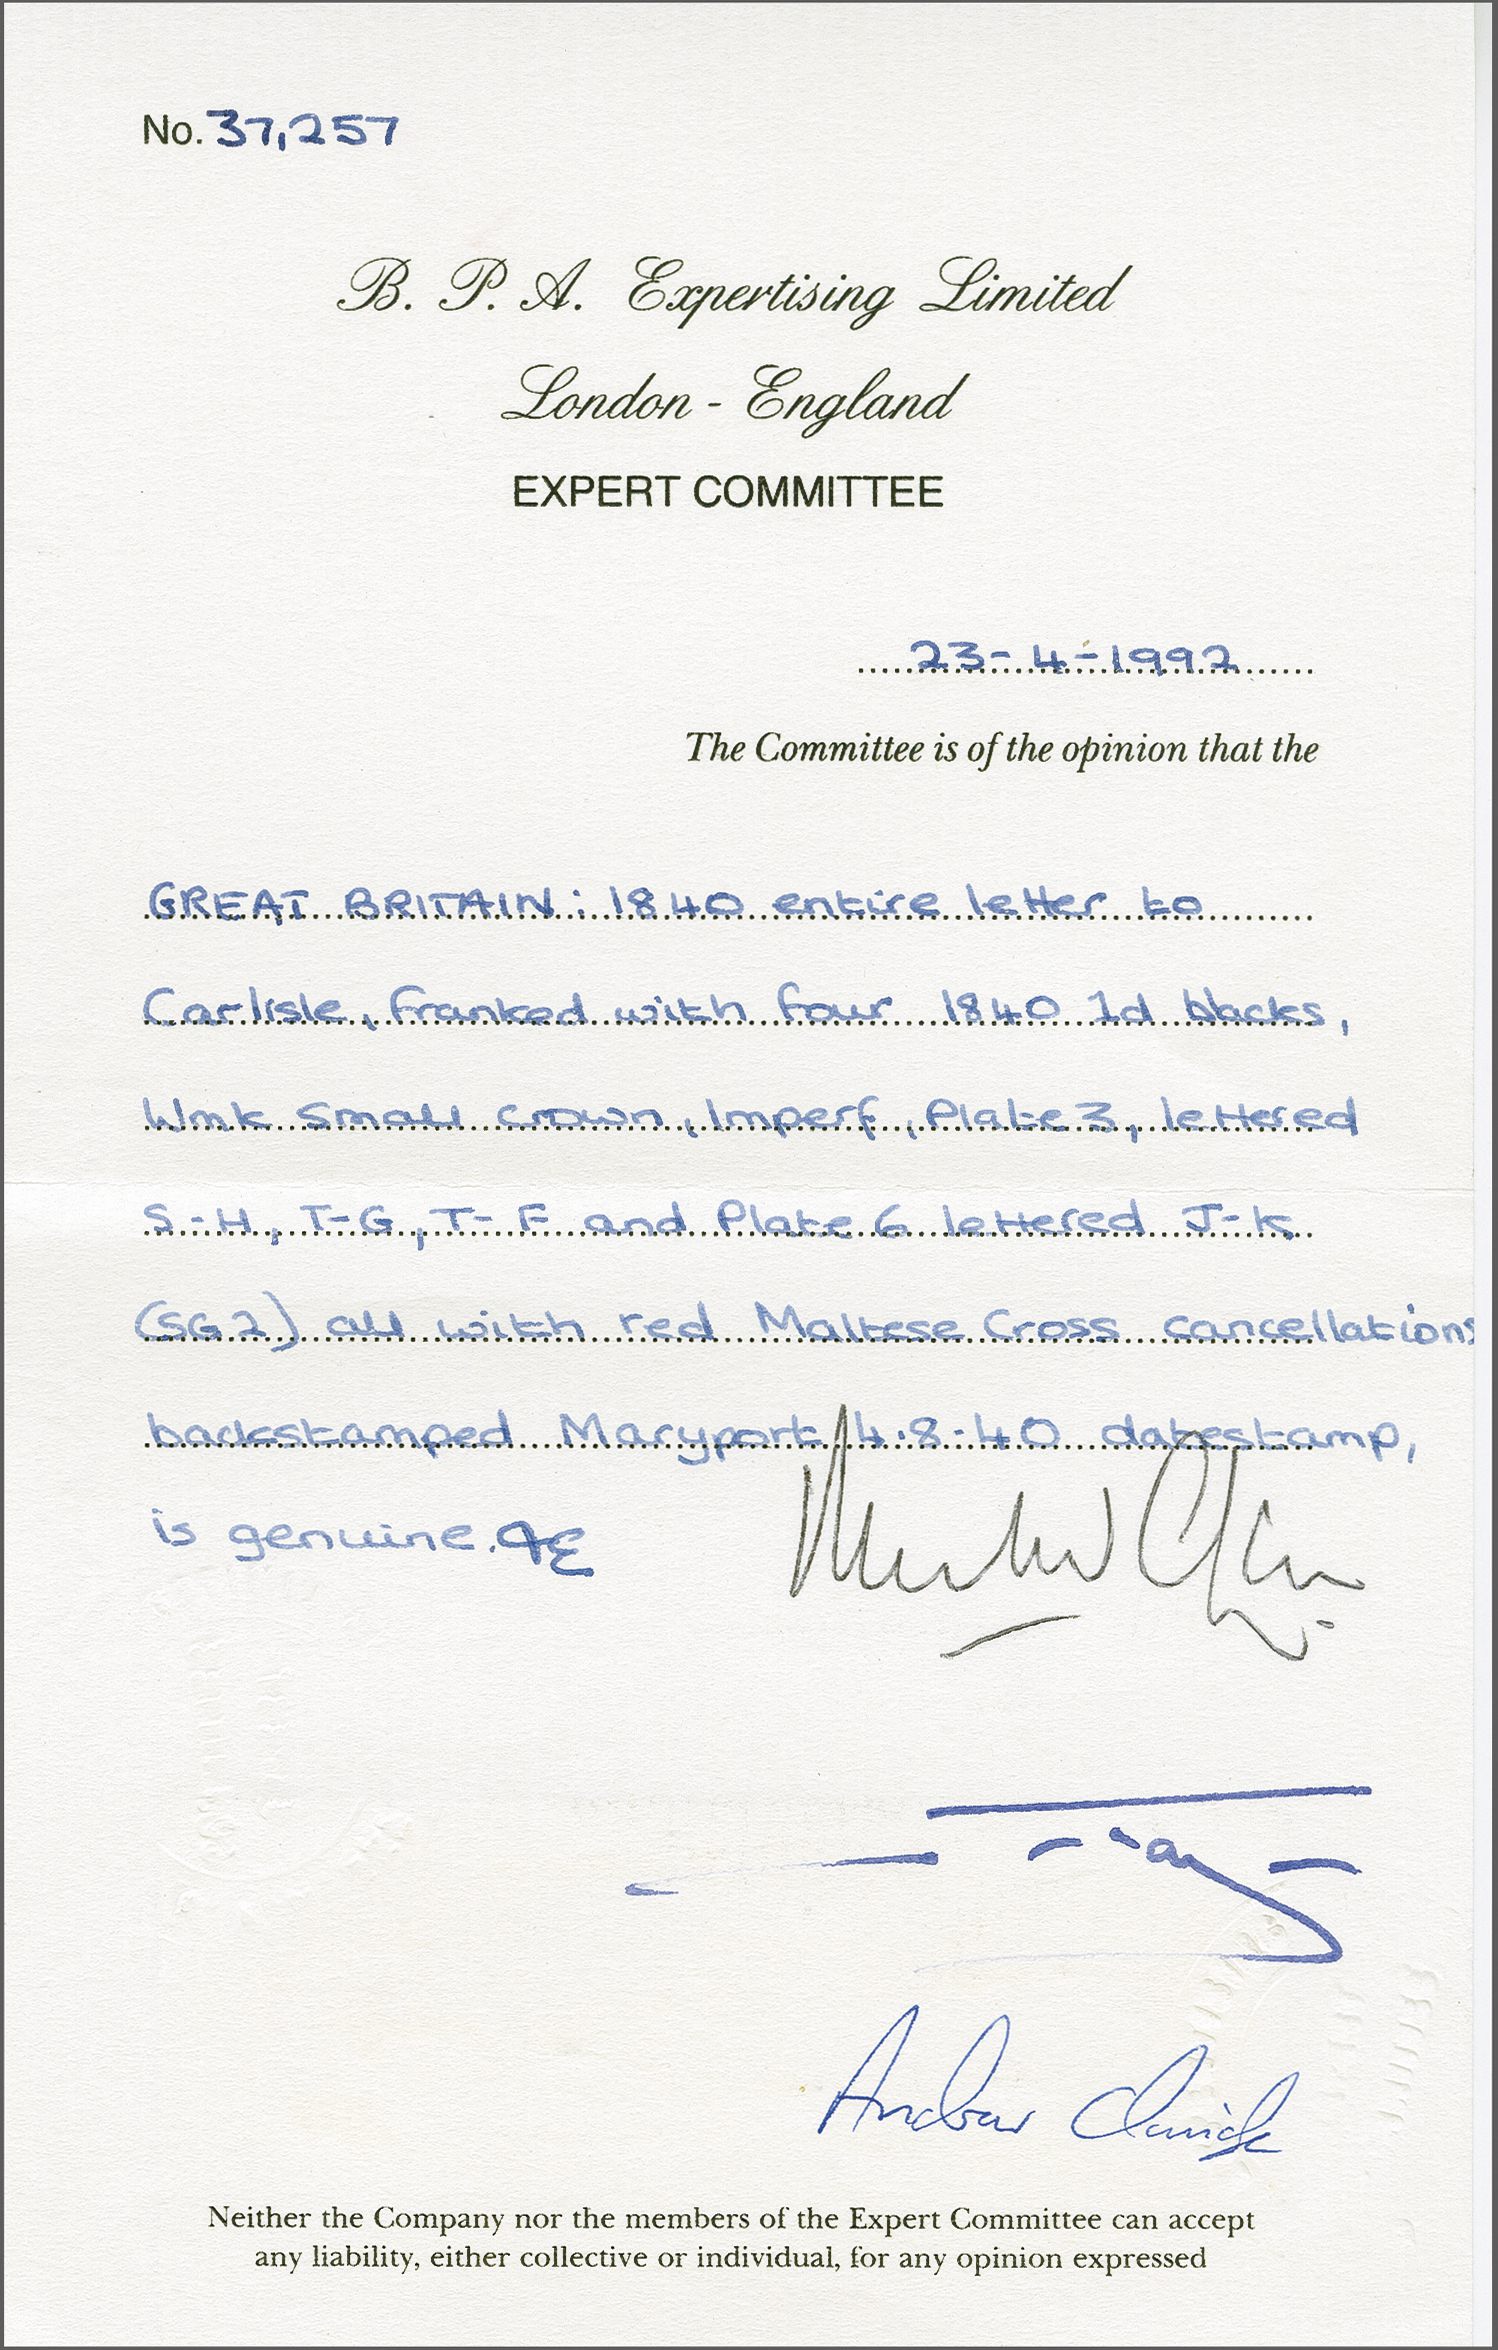 No. 37,257
B. P. A. Expertising Limited
London - England
EXPERT COMMITTEE
23-4-1992
The Committee is of the opinion that the
GREAT BRITAIN: 1840 entire letter to
Carlisle, franked with four 1840 1d blacks,
Wmk small crown, Imperf, Plate 3, lettered
S-H, T-G, T-F and Plate 6 lettered J-K
(SG2) all with red Maltese Cross cancellations
backstamped Maryport 4.8.40 datestamp,
is genuine.
Andrew
Neither the Company nor the members of the Expert Committee can accept
any liability, either collective or individual, for any opinion expressed